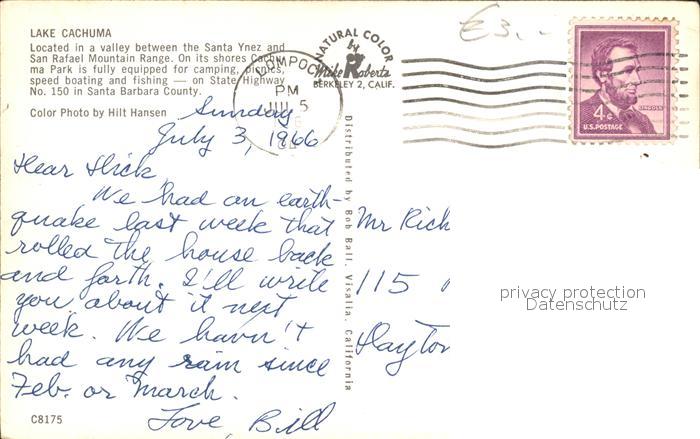 LAKE CACHUMA
Located in a valley between the Santa Ynez and
San Rafael Mountain Range. On its shores Cachu-
ma Park is fully equipped for camping, picnics,
speed boating and fishing — on State Highway
No. 150 in Santa Barbara County.
Color Photo by Hilt Hansen
NATURAL COLOR
by
Mike Roberts
BERKELEY 2, CALIF.
LOMPOC
PM
JUL 5
£3.-
LINCOLN
4¢
U.S. POSTAGE
Sunday
July 3, 1966
Dear Dick,
We had an earth-
quake last week that
rolled the house back
and forth. I'll write
you about it next
week. We havn't
had any rain since
Feb. or March.
Love, Bill
C8175
Distributed by Bob Ball, Visalia, California
Mr Rich
115
Dayton
privacy protection
Datenschutz